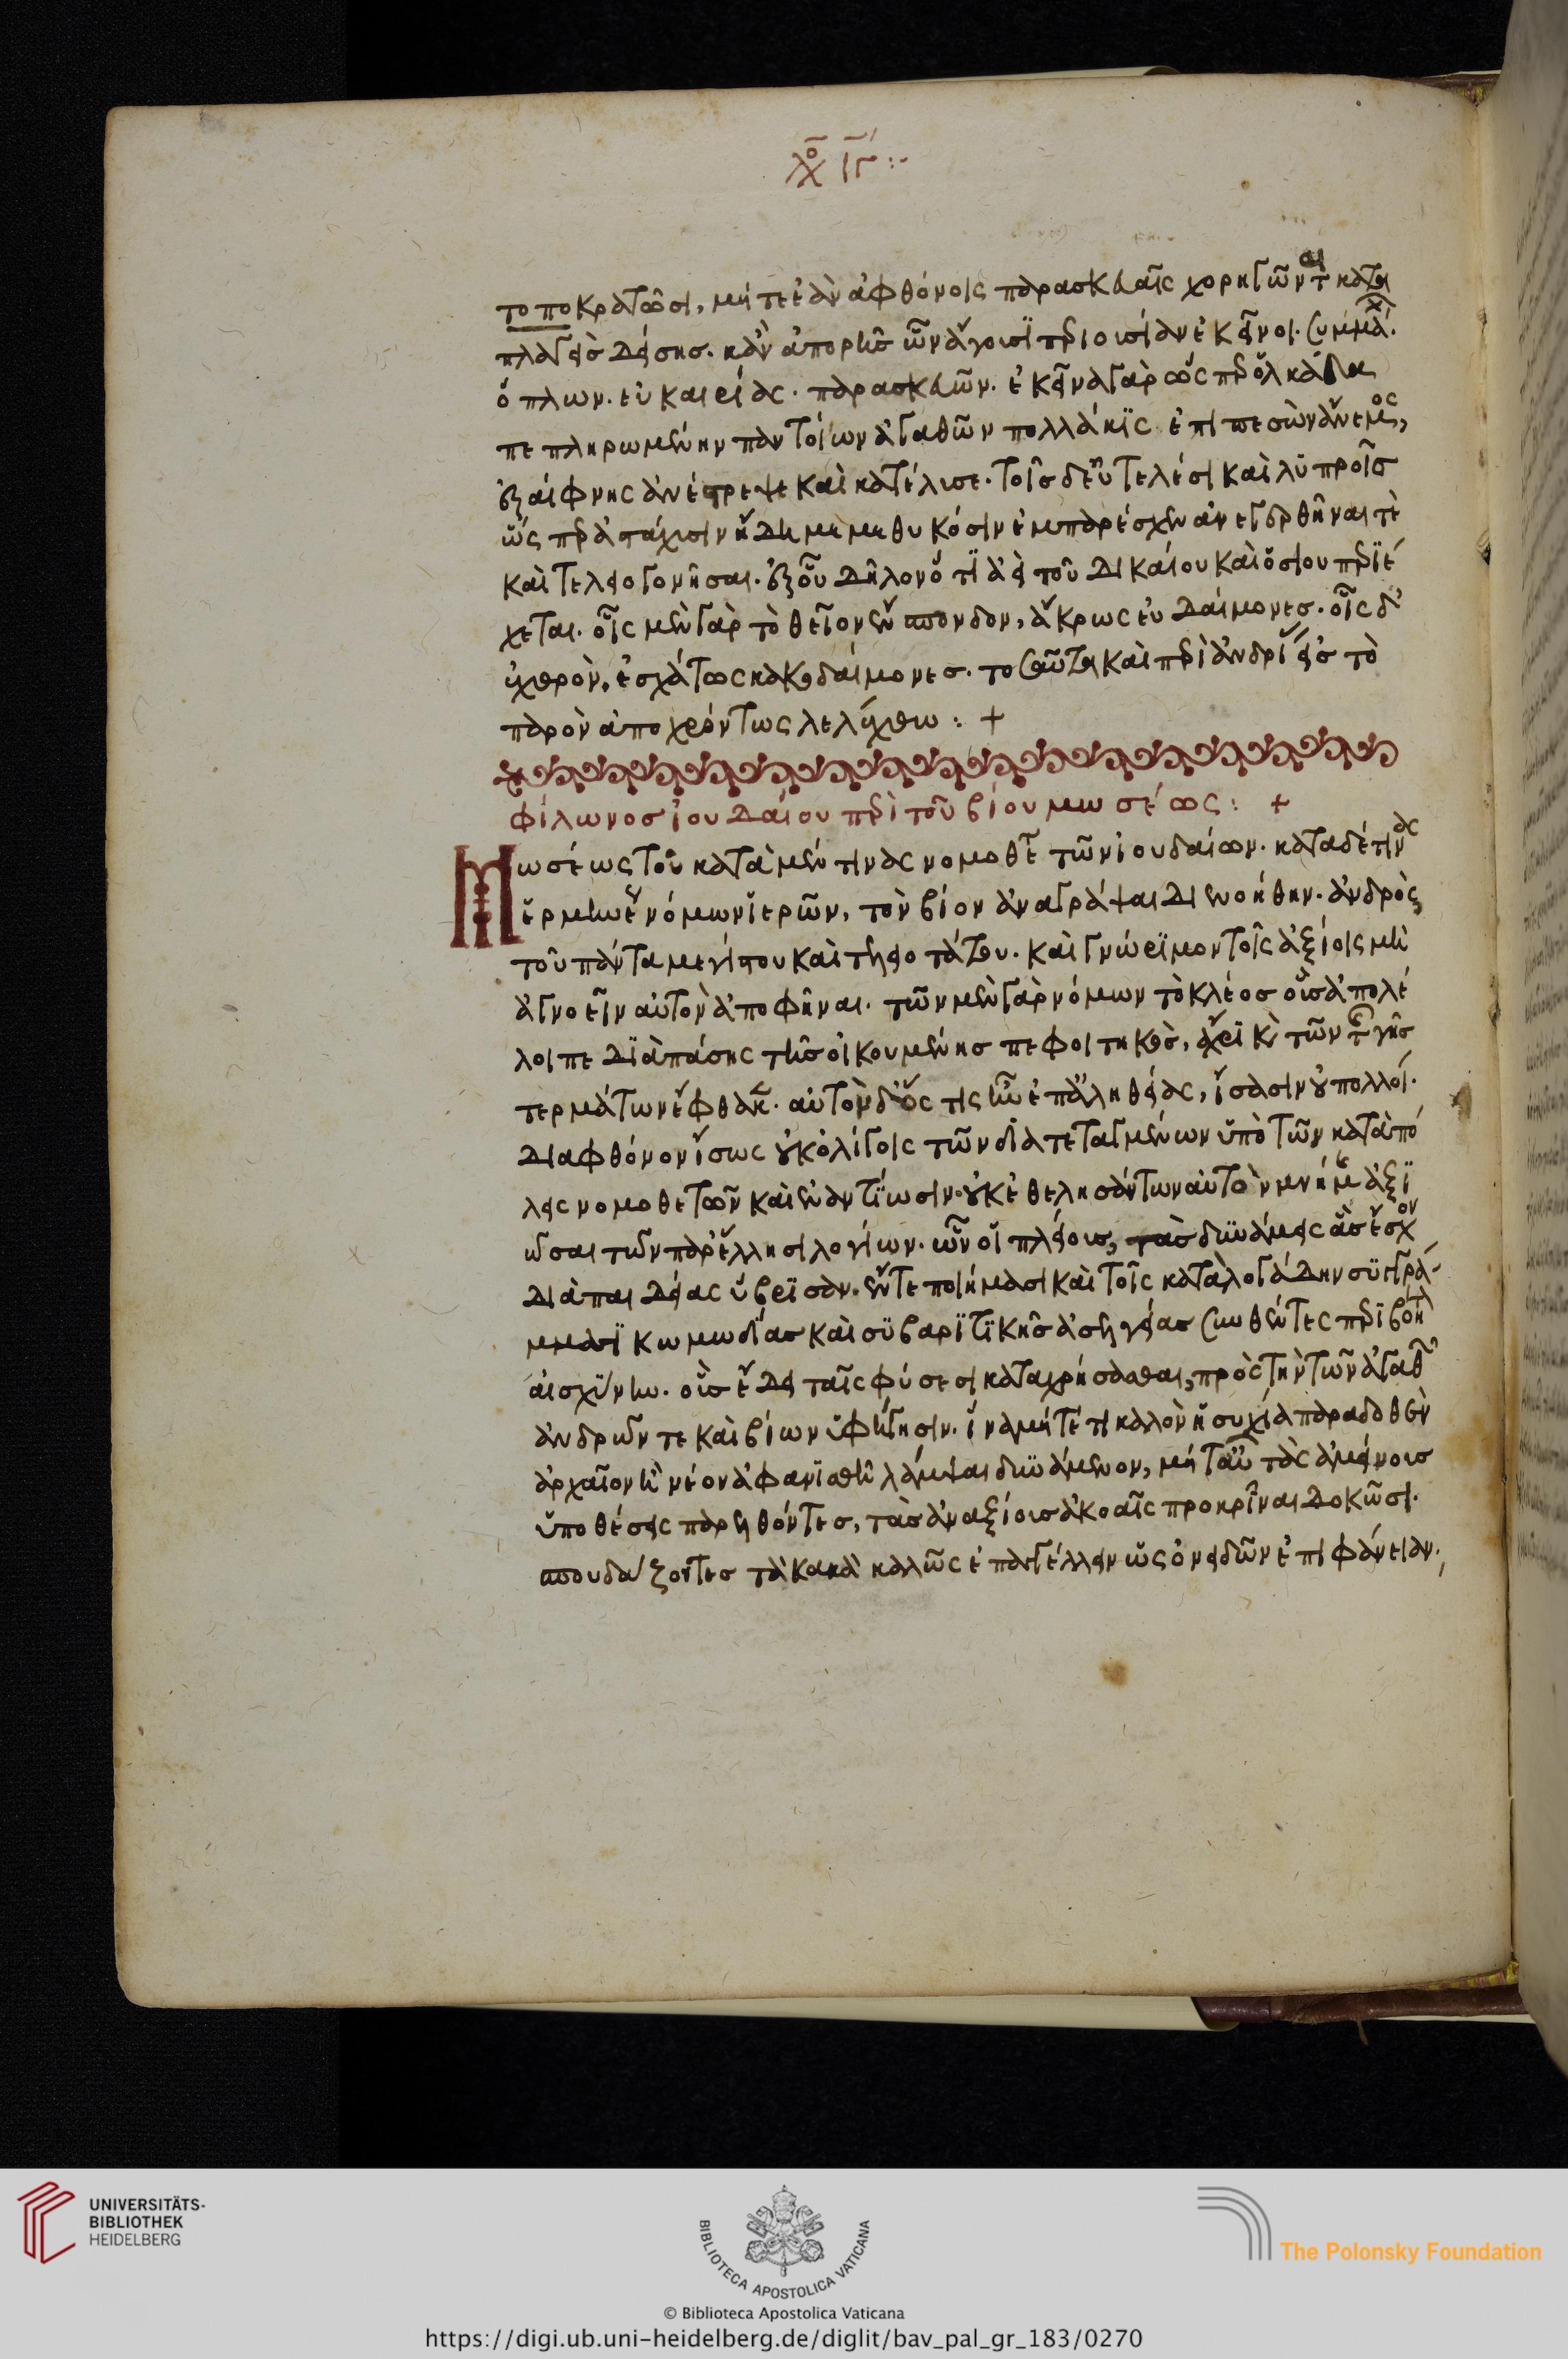 λο̅χ ι̅γ̅ :-
το ποκρατῶσι, μήτε ἐὰν ἀφθόνοις παρασκευαῖς χορηγῶνται κατα
πλαγεὶς δείσης. κἂν ἀπορῆς ὧν ἄγουσϊ περιουσίαν ἐκεῖνοι. συμμάχ.
ὅπλων. εὐκαιρίας. παρασκευῶν. ἐκεῖνα γὰρ ὥσπερ ὁλκάδα
πεπληρωμένην παντοίων ἀγαθῶν πολλάκϊς ἐπιπεσὼν ἄνεμος,
ἐξαίφνης ἀνέτρεψε καὶ κατέλυσε. τοῖς δ' εὐτελέσι καὶ λυπροῖς
ὥσπερ ἀστάχυσιν
καὶ τελειογονῆσαι. ἐξ οὗ δῆλον ὅτϊ ἀεὶ τοῦ δικαίου καὶ ὁσίου περϊέ
χεται. οἷς μὲν γὰρ τὸ θεῖον ἔνσπονδον, ἄκρως εὐδαίμονες. οἷς δ'
ἐχθρὸν, ἐσχάτως κακοδαίμονες. τοσαῦτα καὶ περὶ ἀνδρίας εἰς τὸ
παρὸν ἀποχρώντως λελέχθω : +
φίλωνος ἰουδαίου περὶ τοῦ βίου μωσέως : +
Μωσέως τοῦ κατα μὲν τινὰς νομοθέτ τῶν ἰουδαίων. κατα δέ τινας
ἑρμηνέως νόμων ἱερῶν, τὸν βίον ἀναγράψαι διενοήθην. ἀνδρὸς
τοῦ πάντα μεγίστου καὶ τελειοτάτου. καὶ γνώρϊμον τοῖς ἀξίοις μὴ
ἀγνοεῖν αὐτὸν ἀποφῆναι. τῶν μὲν γὰρ νόμων τὸ κλέος οὓς ἀπολέ
λοιπε δϊὰ πάσης τῆς οἰκουμένης πεφοιτηκὸς, ἄχρϊ καὶ τῶν τῆς γῆς
τερμάτων ἔφθακεν. αὐτὸν δ' ὅστις ἦν ἐπ' ἀληθείας, ἴσασιν οὐ πολλοί.
διὰ φθόνον ἴσως οὐκ ὀλίγοις τῶν διατεταγμένων ὑπὸ τῶν κατὰ πό
λεις νομοθετῶν καὶ ἐναντϊωσιν. οὐκ ἐθελησάντων αὐτὸν μνήμης ἀξϊ
ῶσαι τῶν παρ' ἕλλησι λογίων. ὧν οἱ πλείους, τὰς δυνάμεις ἃς ἔσχον
διὰ παιδείας ὕβρϊσαν. ἔν τε ποιήμασι καὶ τοῖς καταλογάδην συγγρά-
μμασϊ κωμωδίας καὶ συβαρϊτϊκῆς ἀσελγείας συνθέντες περϊβόητ
αἰσχύνην. οὓς ἔδει ταῖς φύσεσι καταχρήσασθαι, πρὸς τὴν τῶν ἀγαθ
ἀνδρῶν τε καὶ βίων ὑφήγησιν. ἵνα μήτέ τι καλὸν ἡσυχία παραδοθὲν
ἀρχαῖον ἢ νέον ἀφανϊσθῆ λάμψαι δυνάμενον, μήτ' αὖ τὰς ἀμείνους
ὑποθέσεις παρελθόντες, τὰς ἀναξίους ἀκοαῖς προκρῖναι δοκῶσι.
σπουδάζοντες τὰ κακὰ καλῶς ἐπαγγέλλειν εἰς ὀνειδῶν ἐπιφάνειαν.
UNIVERSITÄTS-
BIBLIOTHEK
HEIDELBERG
BIBLIOTECA APOSTOLICA VATICANA
The Polonsky Foundation
© Biblioteca Apostolica Vaticana
https://digi.ub.uni-heidelberg.de/diglit/bav_pal_gr_183/0270